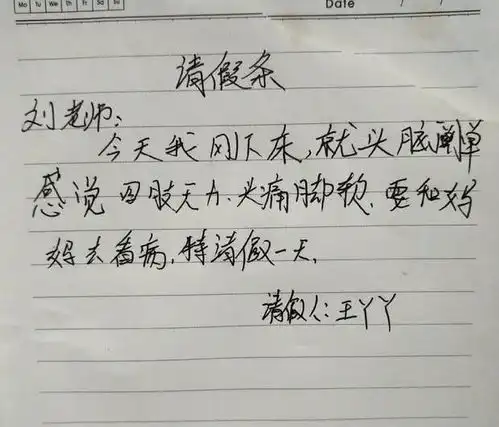 Mo Tu We Th Fr Sa Su
Date / /
请假条
刘老师:
今天我刚下床,就头脑
感说四肢无力.头痛脚软.要和妈
妈去看病,特请假一天,
请假人:王丫丫